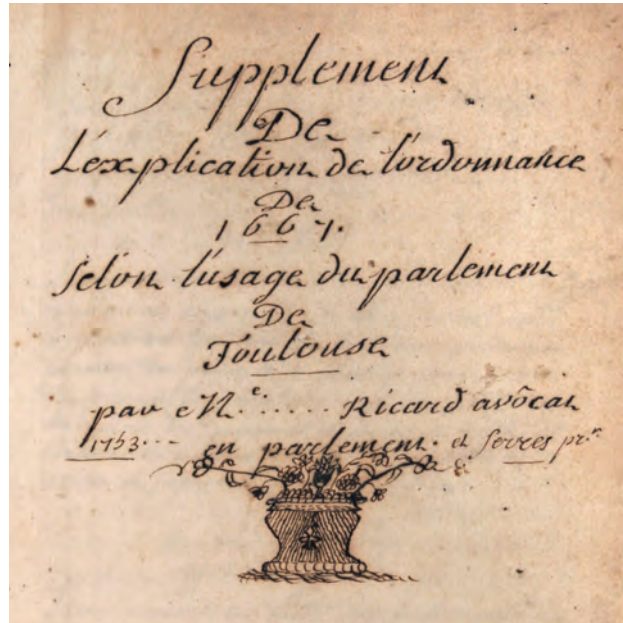 Supplement
De
L'explication de l'ordonnance
De
1667.
selon l'usage du parlement
De
Toulouse
par M.e ..... Ricard avôcat
1753... en parlement. et Serres pr.r